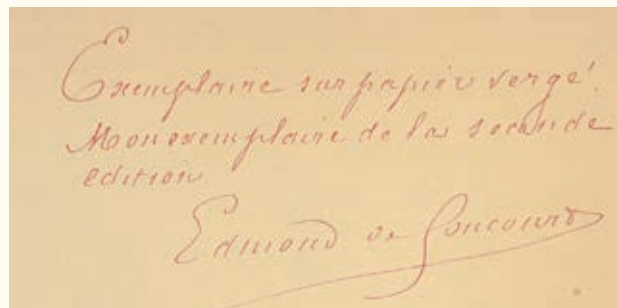 Exemplaire sur papier vergé.
Mon exemplaire de la seconde
édition
Edmond de Goncourt